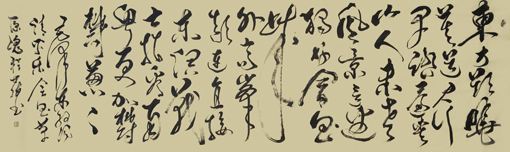 東方欲曉
莫道君行
早踏遍青
山人未老
風景這邊
獨好會昌
城
外高峰
顛連直接
東溟戰
士指看南
粵更加鬱
鬱葱々
毛澤東詞
清平樂會昌
書